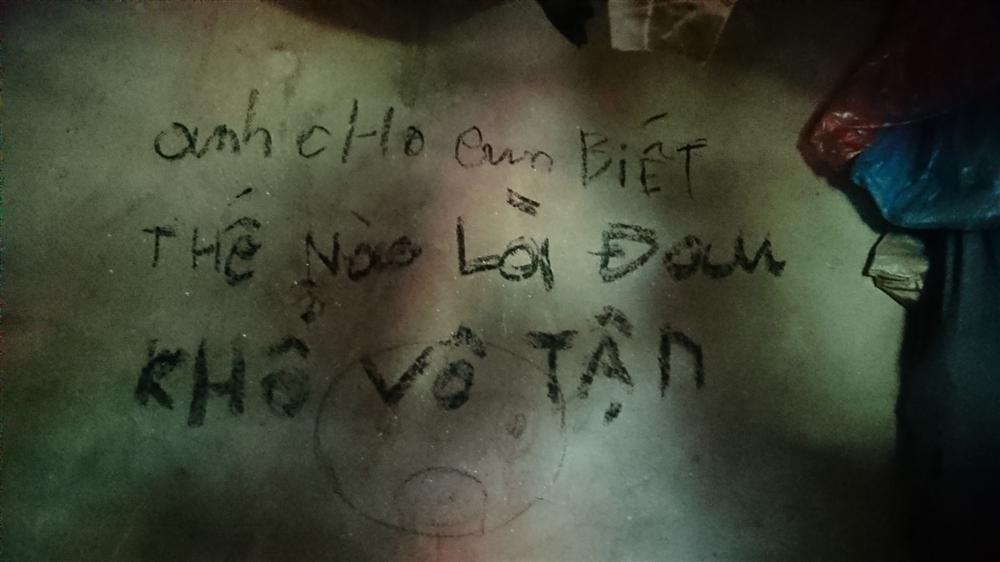 anh cHo em BiẾT
THế Nào Là Đau
KHổ Vô TẬn